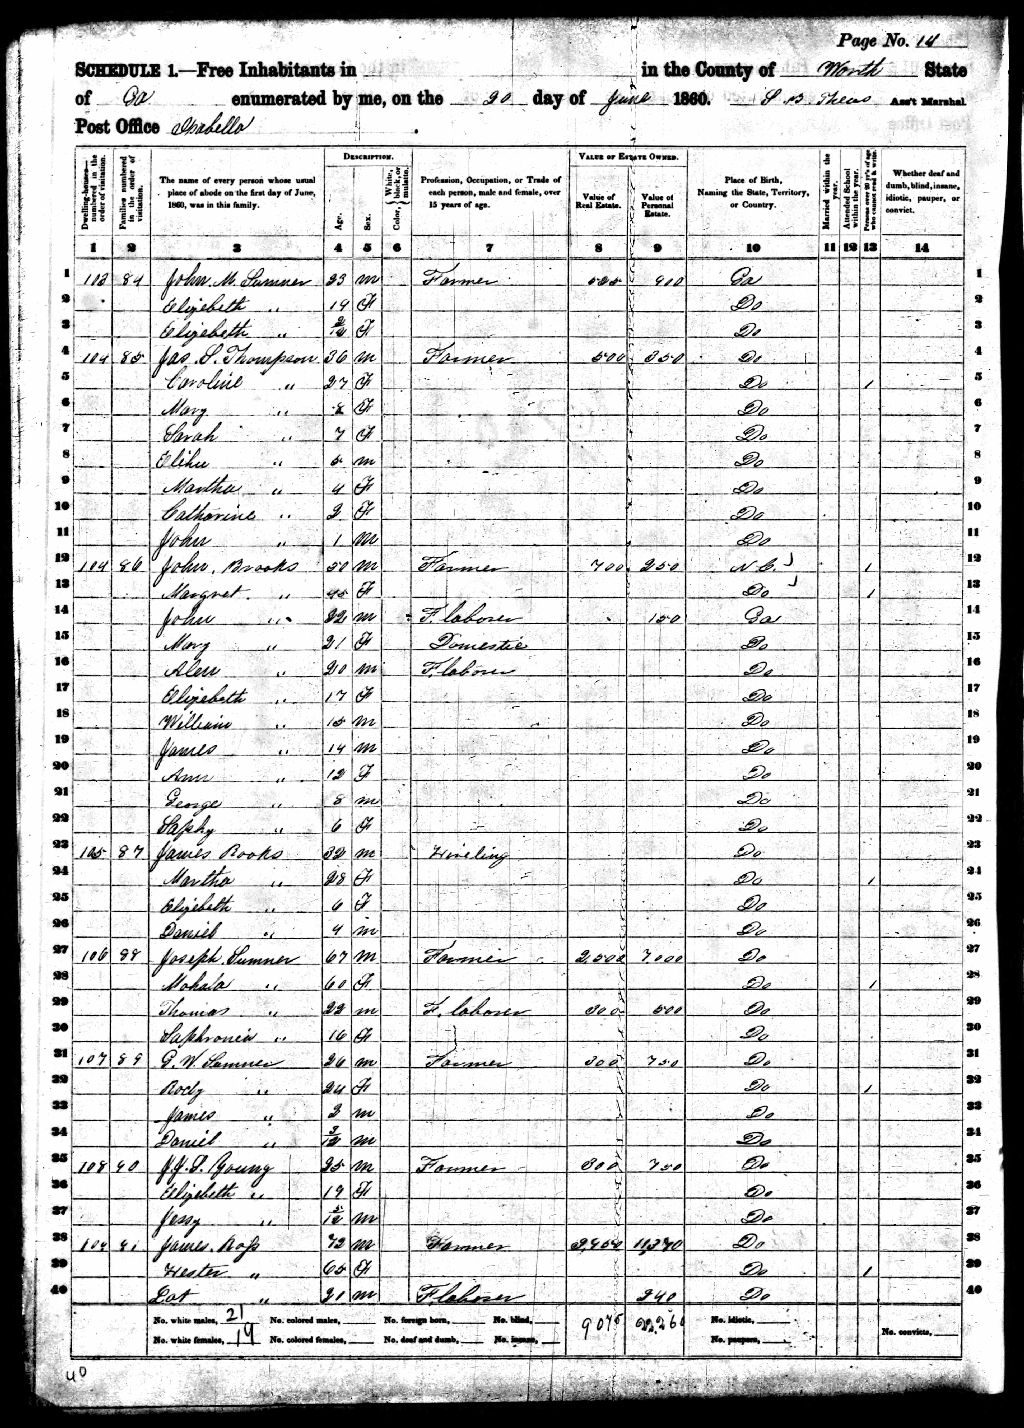 Page No. 14
SCHEDULE 1.—Free Inhabitants in in the County of Worth State
of Ga enumerated by me, on the 20 day of June 1860. Ass't Marshal.
Post Office Isabella
DESCRIPTION. VALUE OF ESTATE OWNED.
Dwelling-houses—numbered in the order of visitation. Families numbered in the order of visitation. The name of every person whose usual place of abode on the first day of June, 1860, was in this family. Age. Sex. Color, White, black, or mulatto. Profession, Occupation, or Trade of each person, male and female, over 15 years of age. Value of Real Estate. Value of Personal Estate. Place of Birth, Naming the State, Territory, or Country. Married within the year. Attended School within the year. Persons over 20 y'rs of age who cannot read & write. Whether deaf and dumb, blind, insane, idiotic, pauper, or convict.
1 2 3 4 5 6 7 8 9 10 11 12 13 14
1 103 84 John M. Sumner 23 m Farmer 900 Ga 1
2 Elizebeth " 19 F Do 2
3 Elizebeth " F Do 3
4 104 85 Jas S. Thompson 36 m Farmer 500 350 Do 4
5 Caroline " 27 F Do 1 5
6 Mary " 8 F Do 6
7 Sarah " 7 F Do 7
8 Elihu " 5 m Do 8
9 Martha " 4 F Do 9
10 Catharine " 2 F Do 10
11 John " 1 m Do 11
12 104 86 John Brooks 50 m Farmer 700 250 N C. 1 12
13 Margret " 45 F Do 1 13
14 John " 22 m F. laborer 150 Ga 14
15 Mary " 21 F Domestic Do 15
16 Alen " 20 m F. laborer Do 16
17 Elizebeth " 17 F Do 17
18 William " 15 m Do 18
19 James " 14 m Do 19
20 Ann " 12 F Do 20
21 George " 8 m Do 21
22 Saphy " 6 F Do 22
23 105 87 James Rooks 32 m Hireling Do 23
24 Martha " 28 F Do 1 24
25 Elizebeth " 6 F Do 25
26 Daniel " 4 m Do 26
27 106 88 Joseph Sumner 67 m Farmer 2,500 7,000 Do 27
28 Mahala " 60 F Do 1 28
29 Thomas " 22 m F. laborer 300 500 Do 29
30 Saphronia " 16 F Do 30
31 107 89 G. W. Sumner 26 m Farmer 300 750 Do 31
32 Rody " 24 F Do 1 32
33 James " 2 m Do 33
34 Daniel " 3/12 m Do 34
35 108 90 J. J. S. Young 25 m Farmer 300 750 Do 35
36 Elizebeth " 19 F Do 36
37 Jessy " m Do 37
38 109 91 James Ross 72 m Farmer 11,370 Do 38
39 Hester " 65 F Do 1 39
40 Lot " 21 m F. laborer 240 Do 40
No. white males, 21 No. colored males, No. foreign born, No. blind, 9075 22,260 No. idiotic,
No. white females, 19 No. colored females, No. deaf and dumb, No. insane, No. paupers, No. convicts,
40